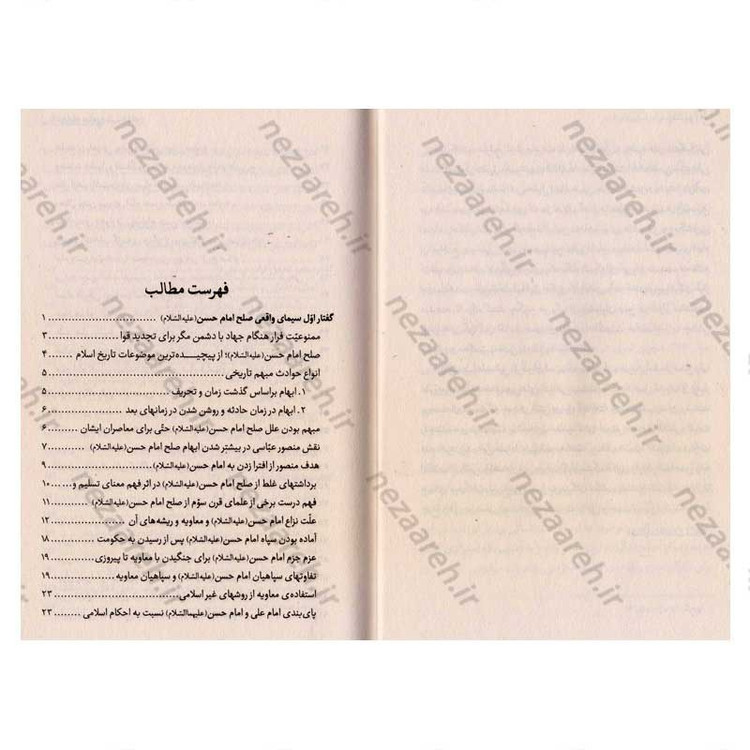 فهرست مطالب
گفتار اوّل سیمای واقعی صلح امام حسن(علیه‌السّلام) ............................ ۱
ممنوعیّت فرار هنگام جهاد با دشمن مگر برای تجدید قوا .................. ۳
صلح امام حسن(علیه‌السّلام)؛ از پیچیـــده‌ترین موضوعات تاریخ اسلام ....... ۴
انواع حوادث مبهم تاریخی ................................................ ۵
۱. ابهام براساس گذشت زمان و تحریف .................................... ۵
۲. ابهام در زمان حادثه و روشن شدن در زمانهای بعد .................... ۶
مبهم بودن علل صلح امام حسن(علیه‌السّلام) حتّی برای معاصران ایشان ........ ۶
نقش منصور عبّاسی در بیشتر شدن ابهام صلح امام حسن(علیه‌السّلام) ........ ۷
هدف منصور از افترا زدن به امام حسن(علیه‌السّلام) ........................ ۹
برداشتهای غلط از صلح امام حسن(علیه‌السّلام) در اثر فهم معنای تسلیم و... ۱۰
فهم درست برخی از علمای قرن سوّم از صلح امام حسن(علیه‌السّلام) ........ ۱۱
علّت نزاع امام حسن(علیه‌السّلام) و معاویه و ریشه‌های آن .................. ۱۲
آماده بودن سپاه امام حسن(علیه‌السّلام) پس از رسیدن به حکومت ............ ۱۸
عزم جزم امام حسن(علیه‌السّلام) برای جنگیدن با معاویه تا پیروزی ........ ۱۹
تفاوتهای سپاهیان امام حسن(علیه‌السّلام) و سپاهیان معاویه ................ ۱۹
استفاده‌ی معاویه از روشهای غیر اسلامی .................................. ۲۳
پای‌بندی امام علی و امام حسن(علیهماالسّلام) نسبت به احکام اسلامی ........ ۲۳
nezaareh.ir
nezaareh.ir
nezaareh.ir
nezaareh.ir
nezaareh.ir
nezaareh.ir
nezaareh.ir
nezaareh.ir
nezaareh.ir